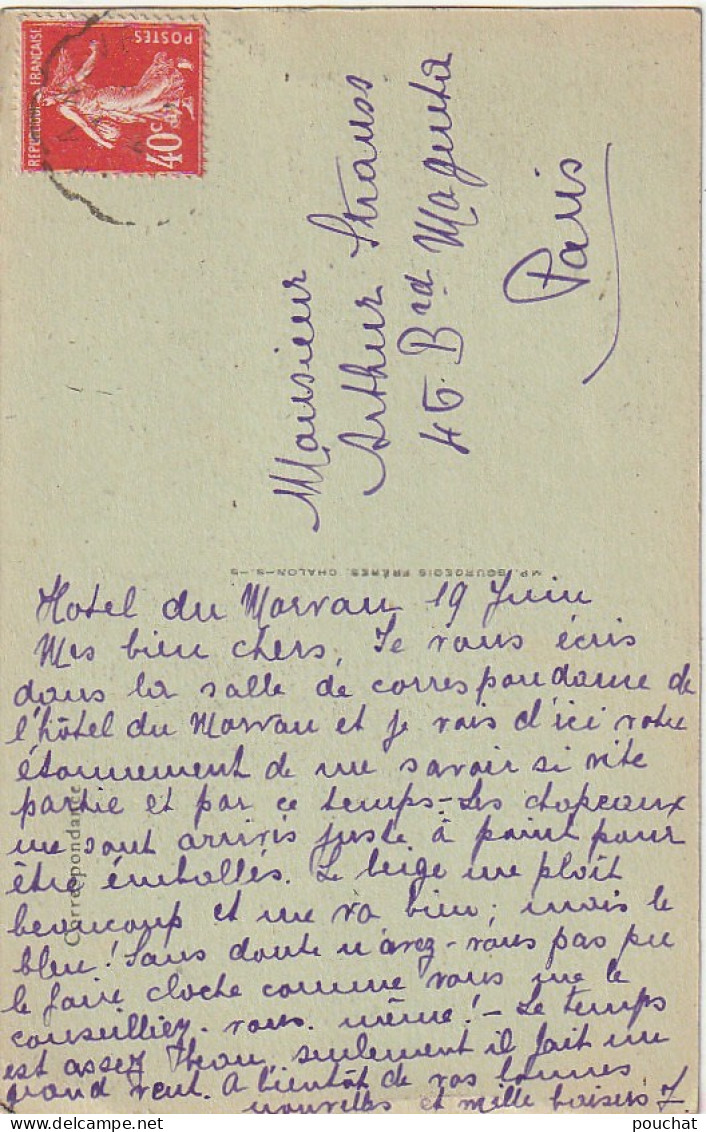 REPUBLIQUE FRANÇAISE
POSTES
40c
Monsieur
Arthur Strauss
45 Brd Magenta
Paris
IMP. BOURGEOIS FRÈRES, CHALON-S.-S
Correspondance
Hotel du Morvan 19 Juin
Mes bien chers, Je vous écris
dans la salle de correspondance de
l'hôtel du Morvan et je vois d'ici votre
étonnement de me savoir si vite
partie et par ce temps - Les chapeaux
me sont arrivés juste à point pour
être emballés. Le beige me plaît
beaucoup et me va bien; mais le
bleu! Sans doute n'avez-vous pas pu
le faire cloche comme vous me le
conseilliez vous même! - Le temps
est assez beau seulement il fait un
grand vent. A bientôt de vos bonnes
nouvelles et mille baisers J.
pouchat